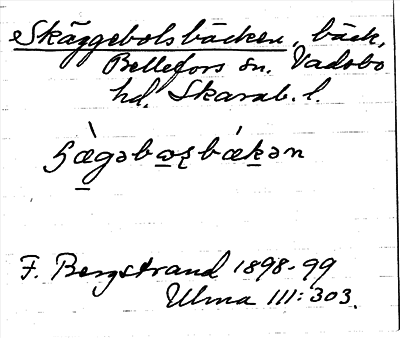 Skäggebolsbäcken, bäck,
Bellefors sn. Vadsbo
hd. Skarab. l.
ʂæ̀gəbɷɽbǽkən
F. Bergstrand 1898-99
Ulma 111:303.